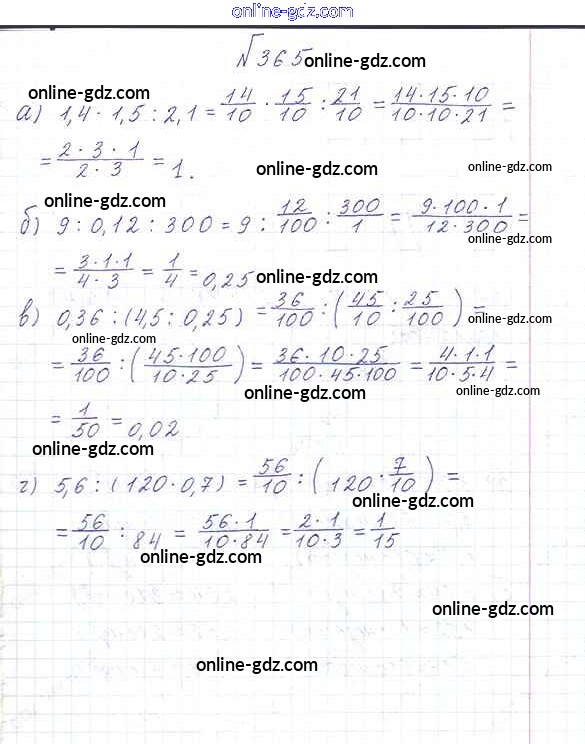 online-gdz.com
№365 online-gdz.com
online-gdz.com
а) 1,4 · 1,5 : 2,1 = 14/10 · 15/10 : 21/10 = 14·15·10/10·10·21 =
= 2·3·1/2·3 = 1.
online-gdz.com online-gdz.com
online-gdz.com
б) 9 : 0,12 : 300 = 9 : 12/100 : 300/1 = 9·100·1/12·300 =
online-gdz.com
= 3·1·1/4·3 = 1/4 = 0,25 online-gdz.com
в) 0,36 : (4,5 : 0,25) = 36/100 : (45/10 : 25/100) =
online-gdz.com
online-gdz.com
= 36/100 : (45·100/10·25) = 36·10·25/100·45·100 = 4·1·1/10·5·4 =
online-gdz.com online-gdz.com
= 1/50 = 0,02
online-gdz.com
г) 5,6 : (120·0,7) = 56/10 : (120·7/10) =
online-gdz.com
= 56/10 : 84 = 56·1/10·84 = 2·1/10·3 = 1/15
online-gdz.com
online-gdz.com
online-gdz.com